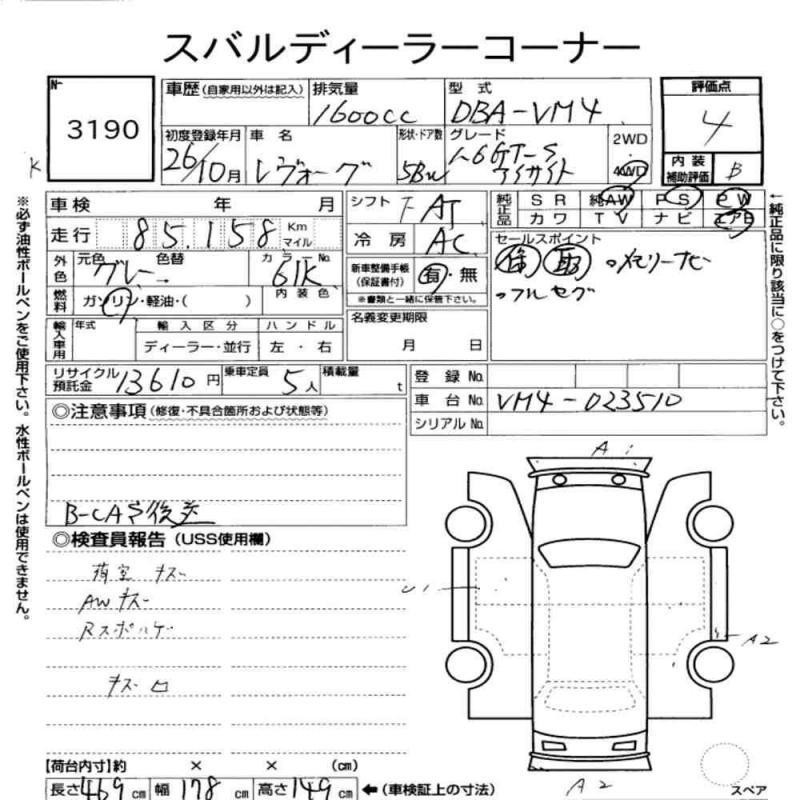 スバルディーラーコーナー
№ 3190
K
車歴 (自家用以外は記入)
排気量 1600cc
型式 DBA-VM4
評価点 4
初度登録年月 26/10月
車名 レヴォーグ
形状・ドア数 5BW
グレード 1.6GT-S アイサイト
2WD
4WD
内装補助評価 B
車検 年 月
走行 85,158 Km マイル
シフト F AT
冷房 AC
純正品 SR 純AW PS PW
カワ TV ナビ エアB
外色 元色 グレー 色替 カラーNo. 61K
燃料 ガソリン・軽油・( ) 内装色
新車整備手帳 (保証書付) 有・無
※書類と一緒に保管下さい。
セールスポイント
保 取 ○メモリーナビ
○フルセグ
輸入車用 年式 輸入区分 ハンドル
ディーラー・並行 左・右
名義変更期限
月 日
リサイクル預託金 13610円 乗車定員 5人 積載量 t
登録No.
車台No. VM4-023510
シリアルNo.
◎注意事項 (修復・不具合箇所および状態等)
B-CAS後送
◎検査員報告 (USS使用欄)
荷室 キズ
AWキズ
キズ
A1
U1
A2
A2
スペア
【荷台内寸】約 × × (cm)
長さ469cm 幅178cm 高さ149cm ←(車検証上の寸法)
※必ず油性ボールペンをご使用下さい。水性ボールペンは使用できません。
←純正品に限り該当に○をつけて下さい。